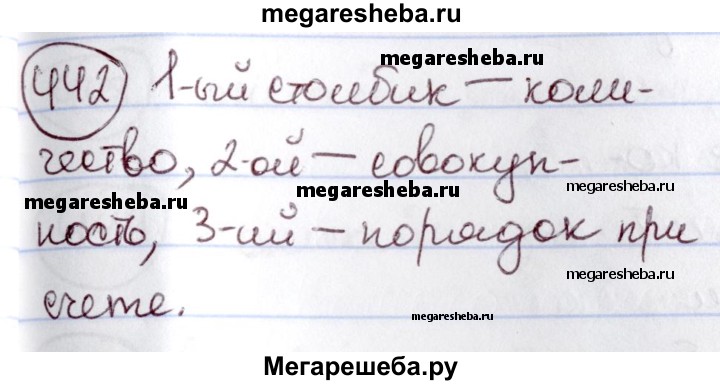 megaresheba.ru
megaresheba.ru
442 1-ый столбик — коли-
megaresheba.ru
чество, 2-ой — совокуп-
megaresheba.ru
megaresheba.ru
megaresheba.ru
ность, 3-ий — порядок при
megaresheba.ru
счете.
megaresheba.ru
Мегарешеба.ру